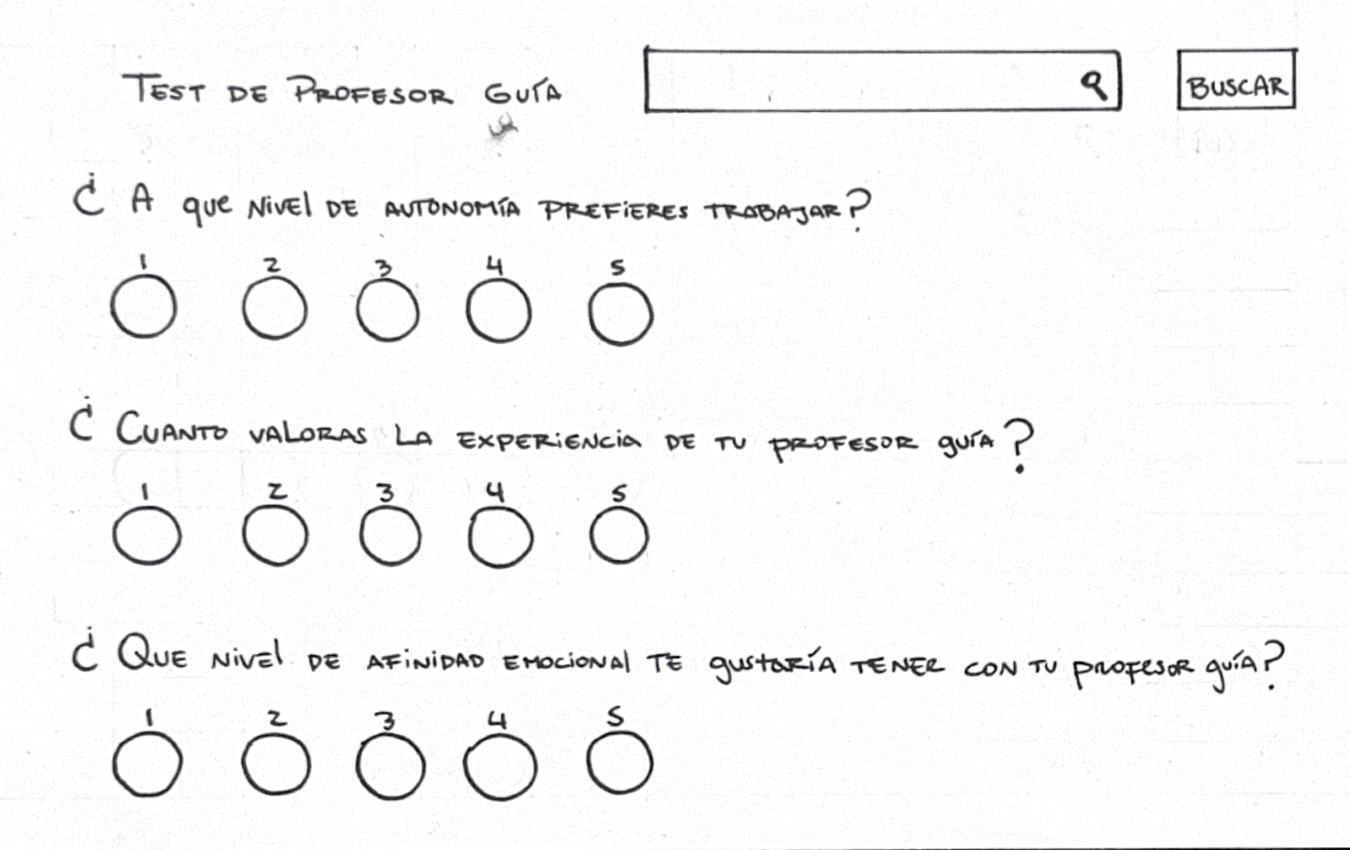 TEST DE PROFESOR GUÍA
BUSCAR
¿ A que NIVEl DE AUTONOMÍA PREFIERES TRABAJAR?
1 2 3 4 5
¿ CUANTO VALORAS LA EXPERIENCIA DE TU PROFESOR guÍA?
1 2 3 4 5
¿ QUE NIVEl DE AFINIDAD EMOCIONAl TE gustaRÍA TENER CON TU PROFESOR guÍA?
1 2 3 4 5